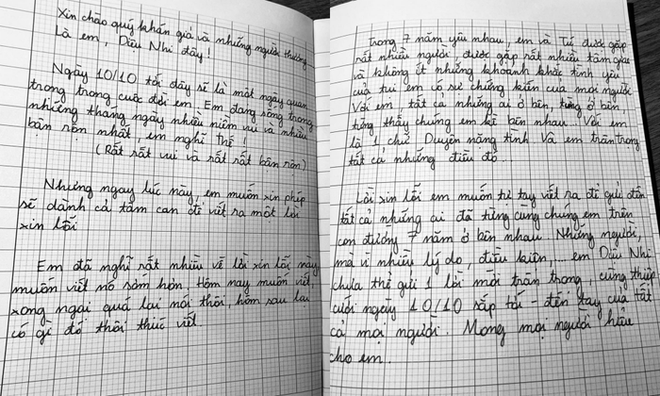 Xin chào quý khán giả và những người thương
Là em, Diệu Nhi đây!
Ngày 10/10 tới đây sẽ là một ngày quan
trọng trong cuộc đời em. Em đang sống trong
những tháng ngày nhiều niềm vui và nhiều
bận rộn nhất, em nghĩ thế!
(Rất rất vui và rất rất bận rộn)
Nhưng ngay lúc này, em muốn xin phép
sẽ dành cả tâm can để viết ra một lời
xin lỗi
Em đã nghĩ rất nhiều về lời xin lỗi này
muốn viết nó sớm hơn. Hôm nay muốn viết,
xong ngại quá lại nói thôi, hôm sau lại
có gì đó thôi thúc viết.
Trong 7 năm yêu nhau, em và Tú được gặp
rất nhiều người, được gặp rất nhiều tâm giao
và không ít những khoảnh khắc tình yêu
của tụi em có sự chứng kiến của mọi người
Với em, tất cả những ai ở bên, từng ở bên
từng thấy chúng em kề bên nhau.. Với em
là 1 chữ Duyên nặng tình và em trân trọng
tất cả những điều đó.
Lời xin lỗi em muốn tự tay viết ra để gửi đến
tất cả những ai đã từng cùng chúng em trên
con đường 7 năm ở bên nhau. Những người,
mà vì nhiều lý do, điều kiện,... em Diệu Nhi
chưa thể gửi 1 lời mời trân trọng, cùng thiệp
cưới ngày 10/10 sắp tới - đến tay của tất
cả mọi người. Mong mọi người hiểu
cho em..